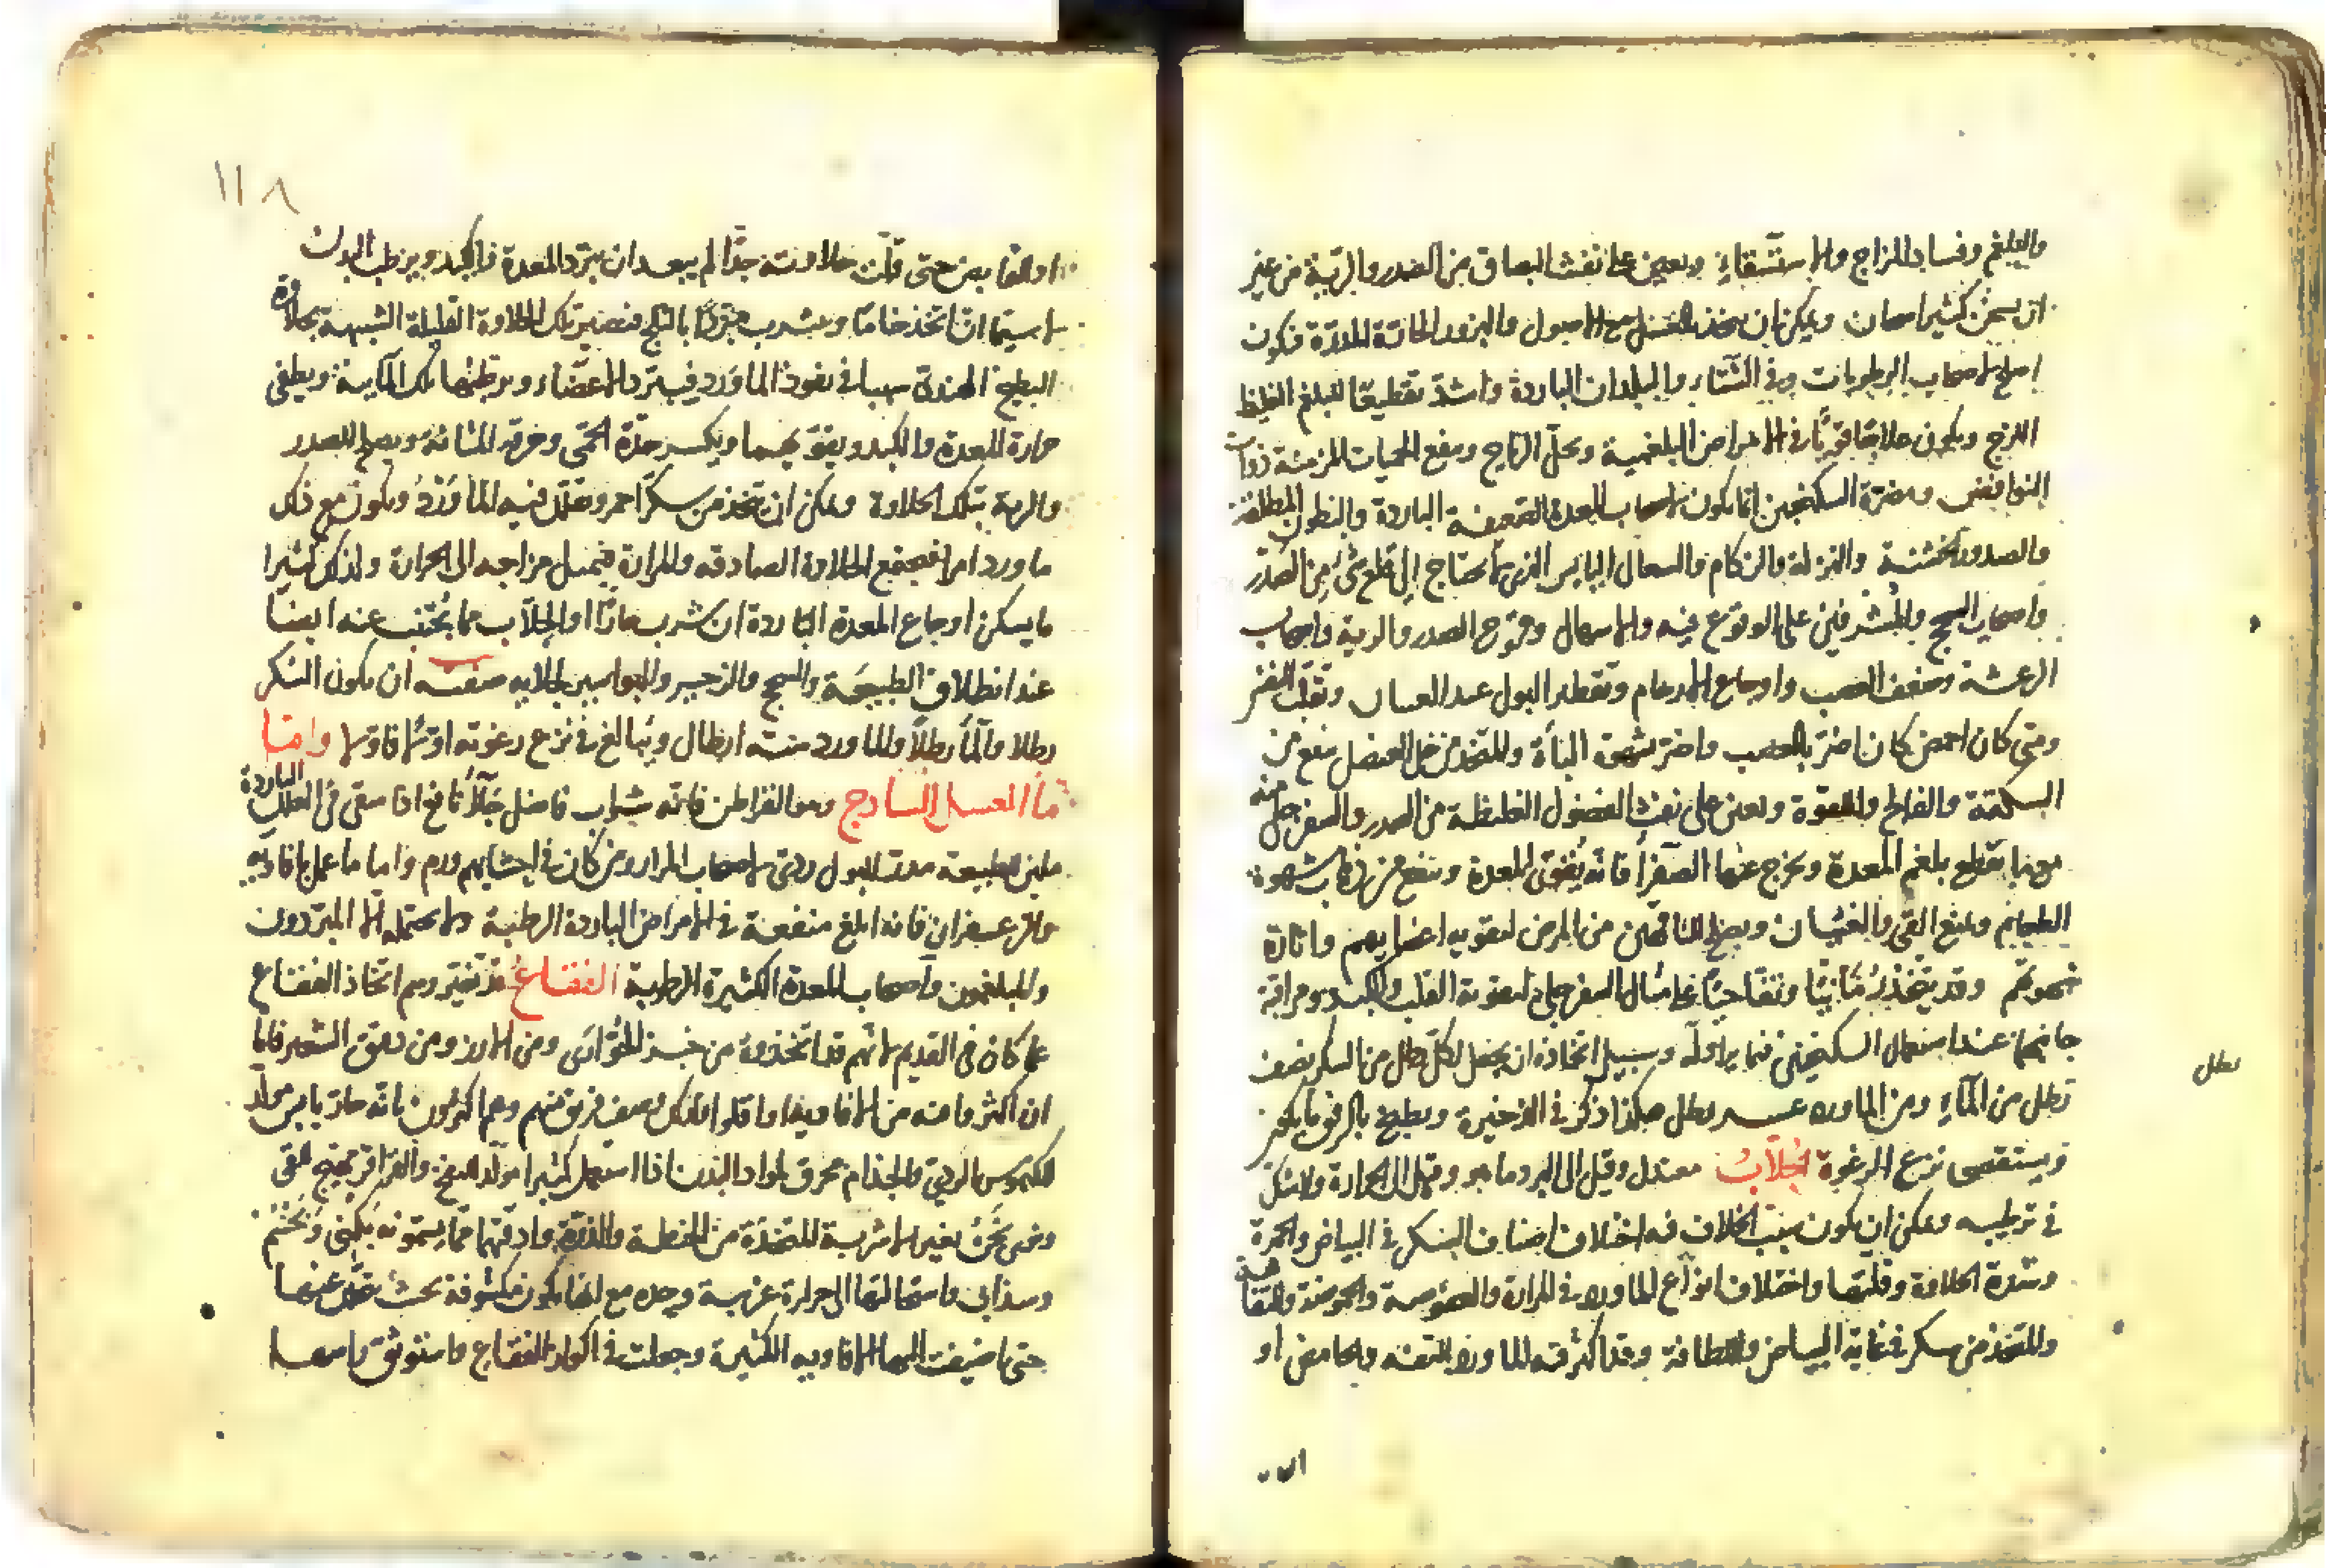 والبلغم وفساد المزاج والاستسقاء ويعين على نفث البصاق من الصدر والرية من غير
ان يسخن كثير اسخان ويمكن ان يتخذ العنصل مع الاصول والبزور الحارة الملدّة فيكون
اصلح لاصحاب الرطوبات وفي الشتاء والبلدان الباردة واشد تقطيعا للبلغم الغليظ
اللزج ويكون علاجا قويا في الامراض البلغمية ويحل الرياح وينفع الحميات المزمنة ذوات
النوافض ومضرة السكنجبين انما يكون لاصحاب المعدة الضعيفة الباردة والبطون المطلقة
والصدور الخشنة والنزلة والزكام والسعال اليابس الذي لا يحتاج الى قلع شئ من الصدر
واصحاب السحج والمشرفين على الوقوع فيه والاسهال وقروح الصدر والرية واصحاب
الرعشة وضعف العصب واوجاع الارحام وتقطر البول عند
ومتى كان احمض كان اضر بالعصب واضر بشهوة الباءة والمتخذ من خل العنصل ينفع من
السكتة والفالج واللقوة ويعين على نفث الفضول الغليظة من الصدر والسفرجلي منه
يقطع بلغم المعدة ويخرج عنها الصفرا فانه يقوى المعدة وينفع من ذهاب شهوة
الطعام ويمنع القي والغثيان ويصلح للناقهين من المرض لتقويه اعضايهم واثارة
شهوتهم وقد يتخذ رمانيا وتفاحيا على مثال السفرجلي لتقوية القلب والكبد ومراقبة
جانبهما عند استعمال السكنجبين فيما يراد له وسبيل اتخاذه ان يجعل لكل رطل من السكر نصف
رطل
رطل من الماء ومن الماورد عشر رطل هكذا ذكر في الذخيرة ويطبخ بالرفق
ويستقصى نزع الرغوة جلاب معتدل وقيل الى البرد ما هو وقيل الى الحرارة ولا شك
في ترطيبه ويمكن ان يكون سبب الخلاف فيه اختلاف اصناف السكر في البياض والحمرة
وشدة الحلاوة وقلتها واختلاف انواع الماورد في المرارة والعفوصة والحموضة والتفاهة
والمتخذ من سكر في غاية البياض واللطافة وقد اكثر فيه الماورد التفه والحامض او
١١٨
او القابض حتى قلت حلاوته جدا لم يبعد ان يبرد المعدة والكبد ويرطب البدن
لا سيما ان اتخذ خاما وشرب مبردا بالثلج فتصير تلك الحلاوة القليلة الشبيهة بحلاوة
البطيخ الهندي سببا في نفوذ الماورد فيبرد الاعضاء ويرطبها تلك المآئية ويطفى
حرارة المعدة والكبد ويقويهما ويكسر حدة الحمى وحرقة المثانة ويصلح للصدر
والرية بتلك الحلاوة ويمكن ان يتخذ من سكر احمر وقلل فيه الماورد ويكون مع ذلك
ماورد امرا فيجتمع الحلاوة الصادقه والمرارة فيميل مزاجه الى الحرارة ولذلك كثيرا
ما يسكن اوجاع المعدة الباردة ان شرب حارا والجلاب مما يجتنب عنه ايضا
عند انطلاق الطبيعة والسحج والزحير والبواسير صفته ان يكون السكر
رطلا والمآ رطلا والماورد ستة ارطال ويبالغ في نزع رغوته اولا فاولا واما
ماء العسل السادج وهو القراطن فانه شراب فاضل نافع اذا سقى في العلل الباردة
ملين للطبيعة مدر للبول ردي لاصحاب المرار ومن كان في احشايهم ورم واما ما عمل بافاويه
وزعفران فانه ابلغ منفعة في الامراض الباردة الرطبة ولا يحتمله الا المبردون
والمبلغمون واصحاب المعدة الكثيرة الرطوبة الفقاع قد تغير رسم اتخاذ الفقاع
عما كان في القديم لانهم قد اتخذوه من خبز الحوارى ومن الارز ومن دقيق الشعير فاما
ان اكثروا فيه من الافاويه او اقلوا فلذلك وصف فريق منهم وهم اكثرون بانه حار يابس مولد
للكيموس الردي والجذام محرق لمواد البدن اذا استعمل كثيرا مولد للنفخ والقراقر مهيج للقى
ونحن نخبر بغير الاشربة المتخذة من الحنطة والذرة وادقتها مما يسمونه
وسذاب واستحالتها الى حرارة غريبة وحده مع انها يكون مكشوفة بحيث
حتى اضيفت اليها الافاويه الكثيرة وجعلت في اكواز الفقاع واستوثق راسها